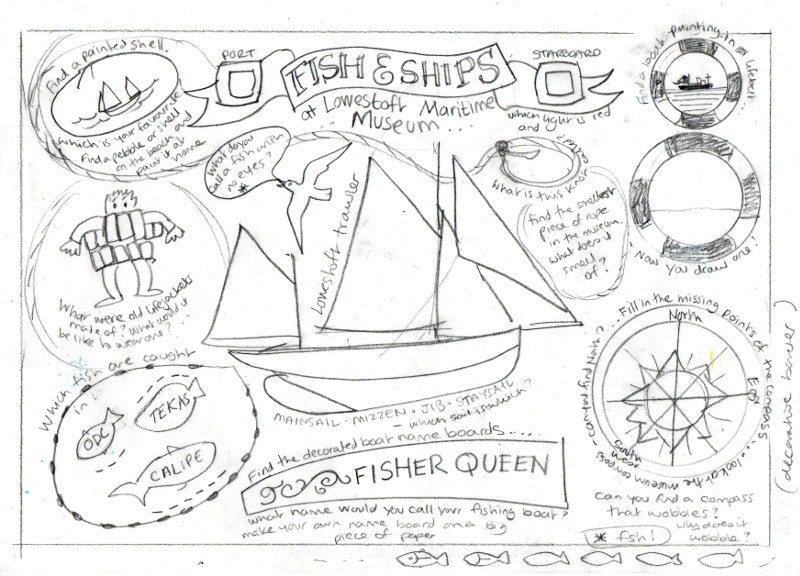 Find a painted shell.
which is your favourite
Find a pebble or shell
on the beach and
paint it at
home
PORT
FISH & SHIPS
at Lowestoft Maritime
Museum....
STARBOARD
which light is red
and
Find a boat painting in a lifebelt...
Now you draw one!
what do you
call a fish with
no eyes?
*
Lowestoft trawler
What is this knot called?
find the smelliest
piece of rope
in the museum.
what does it
smell
of?
What were old lifejackets
made of? What would it
be like to wear one? ...
Which fish are caught
in:
ODC
TEXAS
CALIPE
MAINSAIL · MIZZEN · JIB · STAYSAIL
- which sail is which?
Find the decorated boat name boards.....
FISHER QUEEN
what name would you call your fishing boat?
make your own name board on a big
piece of paper
can you find North?... Fill in the missing points of the compass
... look at the museum compass
North
East
South
West
can you find a compass
that wobbles?
why does it
wobble?
* fsh!
(decorative border)